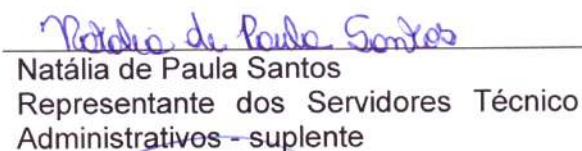 Natalia de Paula Santos
Natália de Paula Santos
Representante dos Servidores Técnico
Administrativos - suplente